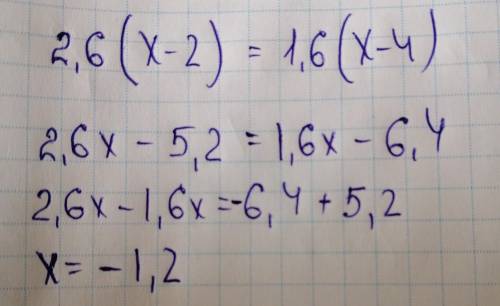 2,6(x-2) = 1,6(x-4)
2,6x - 5,2 = 1,6x - 6,4
2,6x - 1,6x = -6,4 + 5,2
x = -1,2